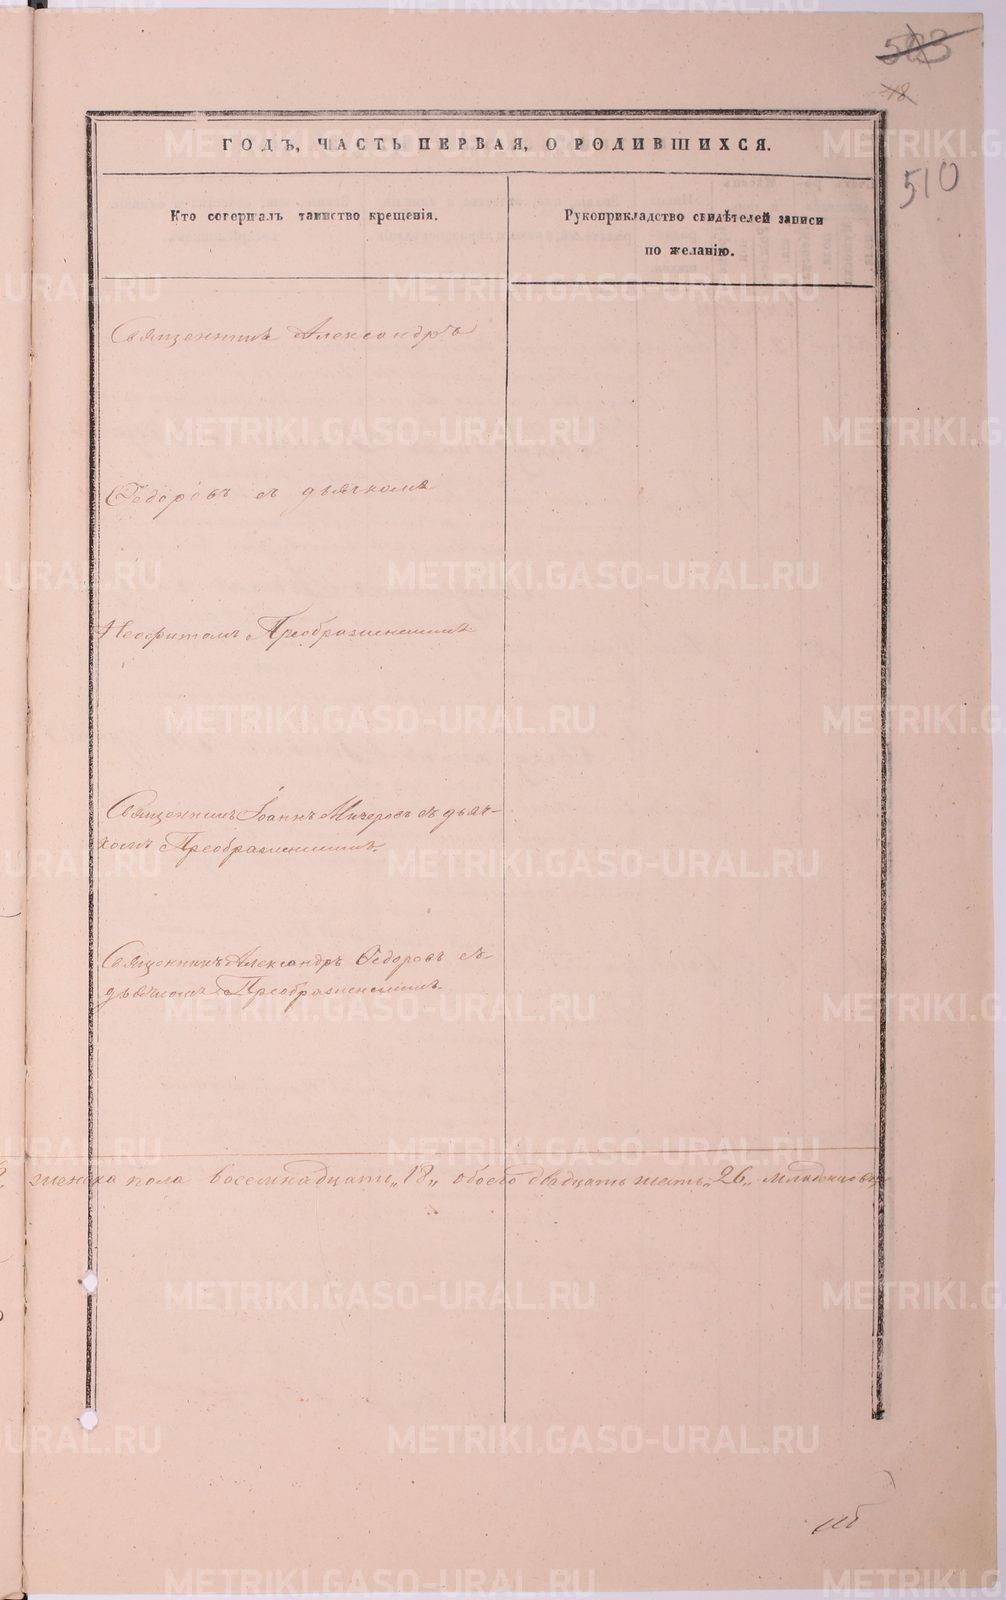 523
18
510
ГОДЪ, ЧАСТЬ ПЕРВАЯ, О РОДИВШИХСЯ.
Кто совершалъ таинство крещенія.
Рукоприкладство свидѣтелей записи
по желанію.
Священникъ Александръ
Ѳедоровъ съ дьячкомъ
Неофитомъ Преображенскимъ
Священникъ Іоаннъ Мичеровъ съ дьяч-
комъ Преображенскимъ.
Священникъ Александръ Ѳедоровъ съ
дьячкомъ Преображенскимъ.
женска пола восемнадцать „18„ обоего двадцать шесть „26„ младенцовъ
METRIKI.GASO-URAL.RU